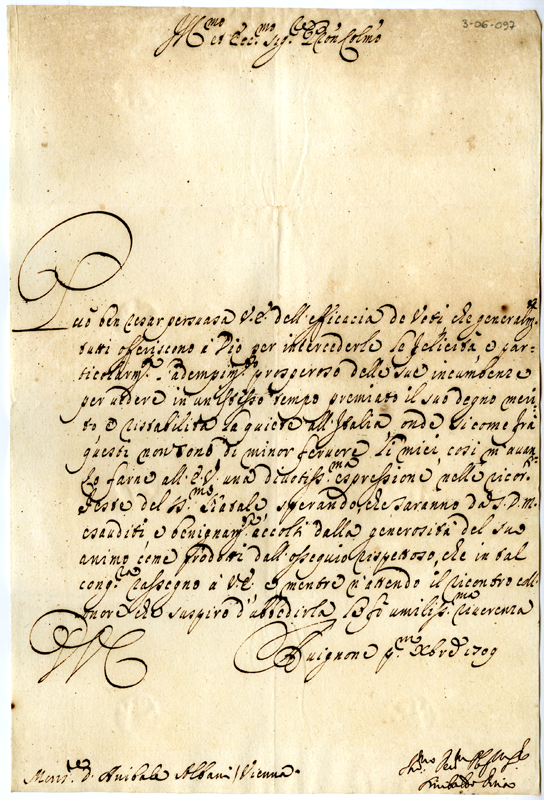 3-06-097
Ill.mo et Ecc.mo Sig.re P̄ron Colmo
Può ben restar persuasa V.E. dell'efficacia de Voti che generalm.te
tutti offeriscono à Dio per intercederle la felicità, e par-
ticolarm.te l'adempim.to prosperoso delle sue incumbenze
per vedere in un istesso tempo premiato il suo degno meri-
to e ristabilita la quiete all'Italia, onde si come frà
questi non sono di minor fervore li miei, così m'avan-
zo farne all'E.V. una divotiss.ma espressione nelle ricor-
denze del S.mo Natale, sperando che saranno da S.D.M.
esauditi e benignam.te accolti dalla generosità del suo
animo come prodotti dall'ossequio rispettoso, che in tal
cong.ra rassegno à V.E. e mentre n'attendo il riscontro coll'
onore che suspiro d'ubbedirla le fò umiliss.ma riverenza
Avignone p.mo Xbre 1709
Mons.re D. Anibale Albani / Vienna.